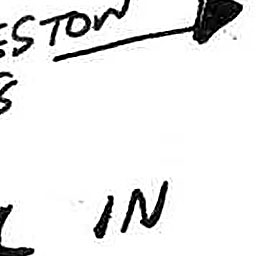 ESTON
S
L IN